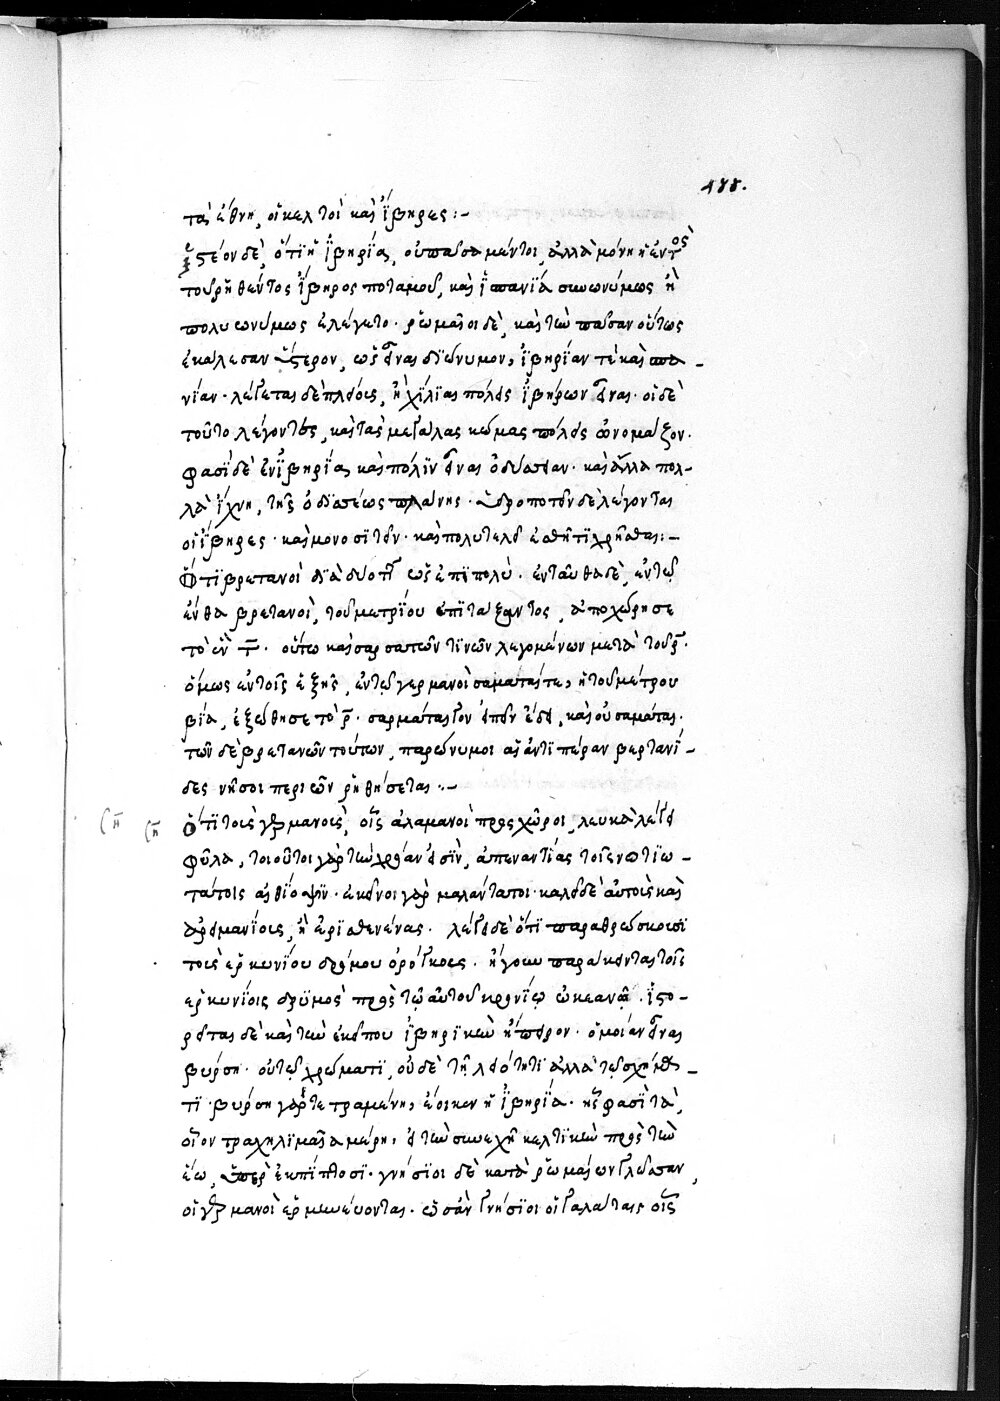 188.
τὰ ἔθνη, οἱ κελτοὶ καὶ ἴβηρες :-
ἰστέον δὲ, ὅτι ἡ ἰβηρία, οὐ πᾶσα μέντοι, ἀλλὰ μόνη ἡ ἐντὸς
τοῦ ῥηθέντος ἴβηρος ποταμοῦ, καὶ ἱσπανία συνωνύμως ἢ
πολυωνύμως ἐλέγετο. ῥωμαῖοι δὲ, καὶ τὴν πᾶσαν οὕτως
ἐκάλεσαν ὕστερον, ὡς εἶναι διώνυμον, ἰβηρίαν τὲ καὶ σπα-
νίαν. λέγεται δὲ πλείοις, ἢ χίλιας πόλεις ἰβήρων εἶναι. οἱ δὲ
τοῦτο λέγοντες, καὶ τὰς μεγάλας κώμας πόλεις ὠνόμαζον.
φασὶ δὲ ἐν ἰβηρίᾳ καὶ πόλιν εἶναι ὀδύσσειαν. καὶ ἄλλα πολ-
λὰ ἴχνη, τῆς ὀδυσσέως πλάνης. ὑδροποτεῖν δὲ λέγονται
οἱ ἴβηρες. καὶ μονοσιτεῖν. καὶ πολυτελεῖ ἐσθῆτι χρῆσθαι :-
Ὅτι βρετανοὶ διὰ δύο ττ ὡς ἐπιπολύ. ἐνταῦθα δὲ, ἐν τῷ
ἔνθα βρετανοὶ, τοῦ μετρίου ἐπιτάξαντος, ἀπεχώρησε
τὸ ἓν τ. οὕτω καὶ σαρματῶν τινῶν λεγομένων μετὰ τοῦ ρ.
ὅμως ἐν τοῖς ἑξῆς, ἐν τῷ γερμανοὶ σαμάται τε, ἡ τοῦ μέτρου
βία, ἐξώθησε τὸ ρ. σαρμάται γὰρ εἰπεῖν ἔδει, καὶ οὐ σαμάται.
τῶν δὲ βρετανῶν τούτων, παρώνυμοι αἱ ἀντιπέραν βρετανί-
δες νῆσοι περὶ ὧν ῥηθήσεται .-
Ὅτι τοῖς γερμανοῖς, οἷς ἀλαμανοὶ προσχῶροι, λευκὰ λέγει
φῦλα, τοιοῦτοι γὰρ τὴν χροίαν εἰσὶν, ἀπεναντίας τοῖς νοτιω-
τάτοις αἰθίοψιν. ἐκεῖνοι γὰρ μελάντατοι. καλεῖ δὲ αὐτοὺς καὶ
ἀρειμανίους, ἢ ἀρισθενέας. λέγει δὲ ὅτι παραθρώσκουσι
τοὺς ἑρκυνίου δρύμου ὀρόγκους. ἤγουν παράκεινται τοῖς
ἑρκυνίοις δρυμοῖς πρὸς τῷ αὐτοῦ κρονίῳ ὠκεανῷ. ἱστο-
ρεῖται δὲ καὶ τὴν ἐκεῖ που ἰβηρικὴν ἤπειρον. ὁμοίαν εἶναι
βύρσῃ. οὐ τῷ χρώματι, οὐδὲ τῇ λειότητι ἀλλὰ τῷ σχήμα-
τι. βύρσῃ γὰρ τετραμένῃ, ἔοικεν ἡ ἰβηρία. ἧς φασὶ τὰ,
οἷον τραχηλιμαῖα μέρη, εἰς τὴν συνεχῆ κελτικὴν πρὸς τὴν
ἕω, ὑπερεκπίπτουσι. γνήσιοι δὲ κατὰ ῥωμαίων γλῶσσαν,
οἱ γερμανοὶ ἑρμηνεύονται. ὡσὰν γνήσιοι οἱ γαλάταις οἷς